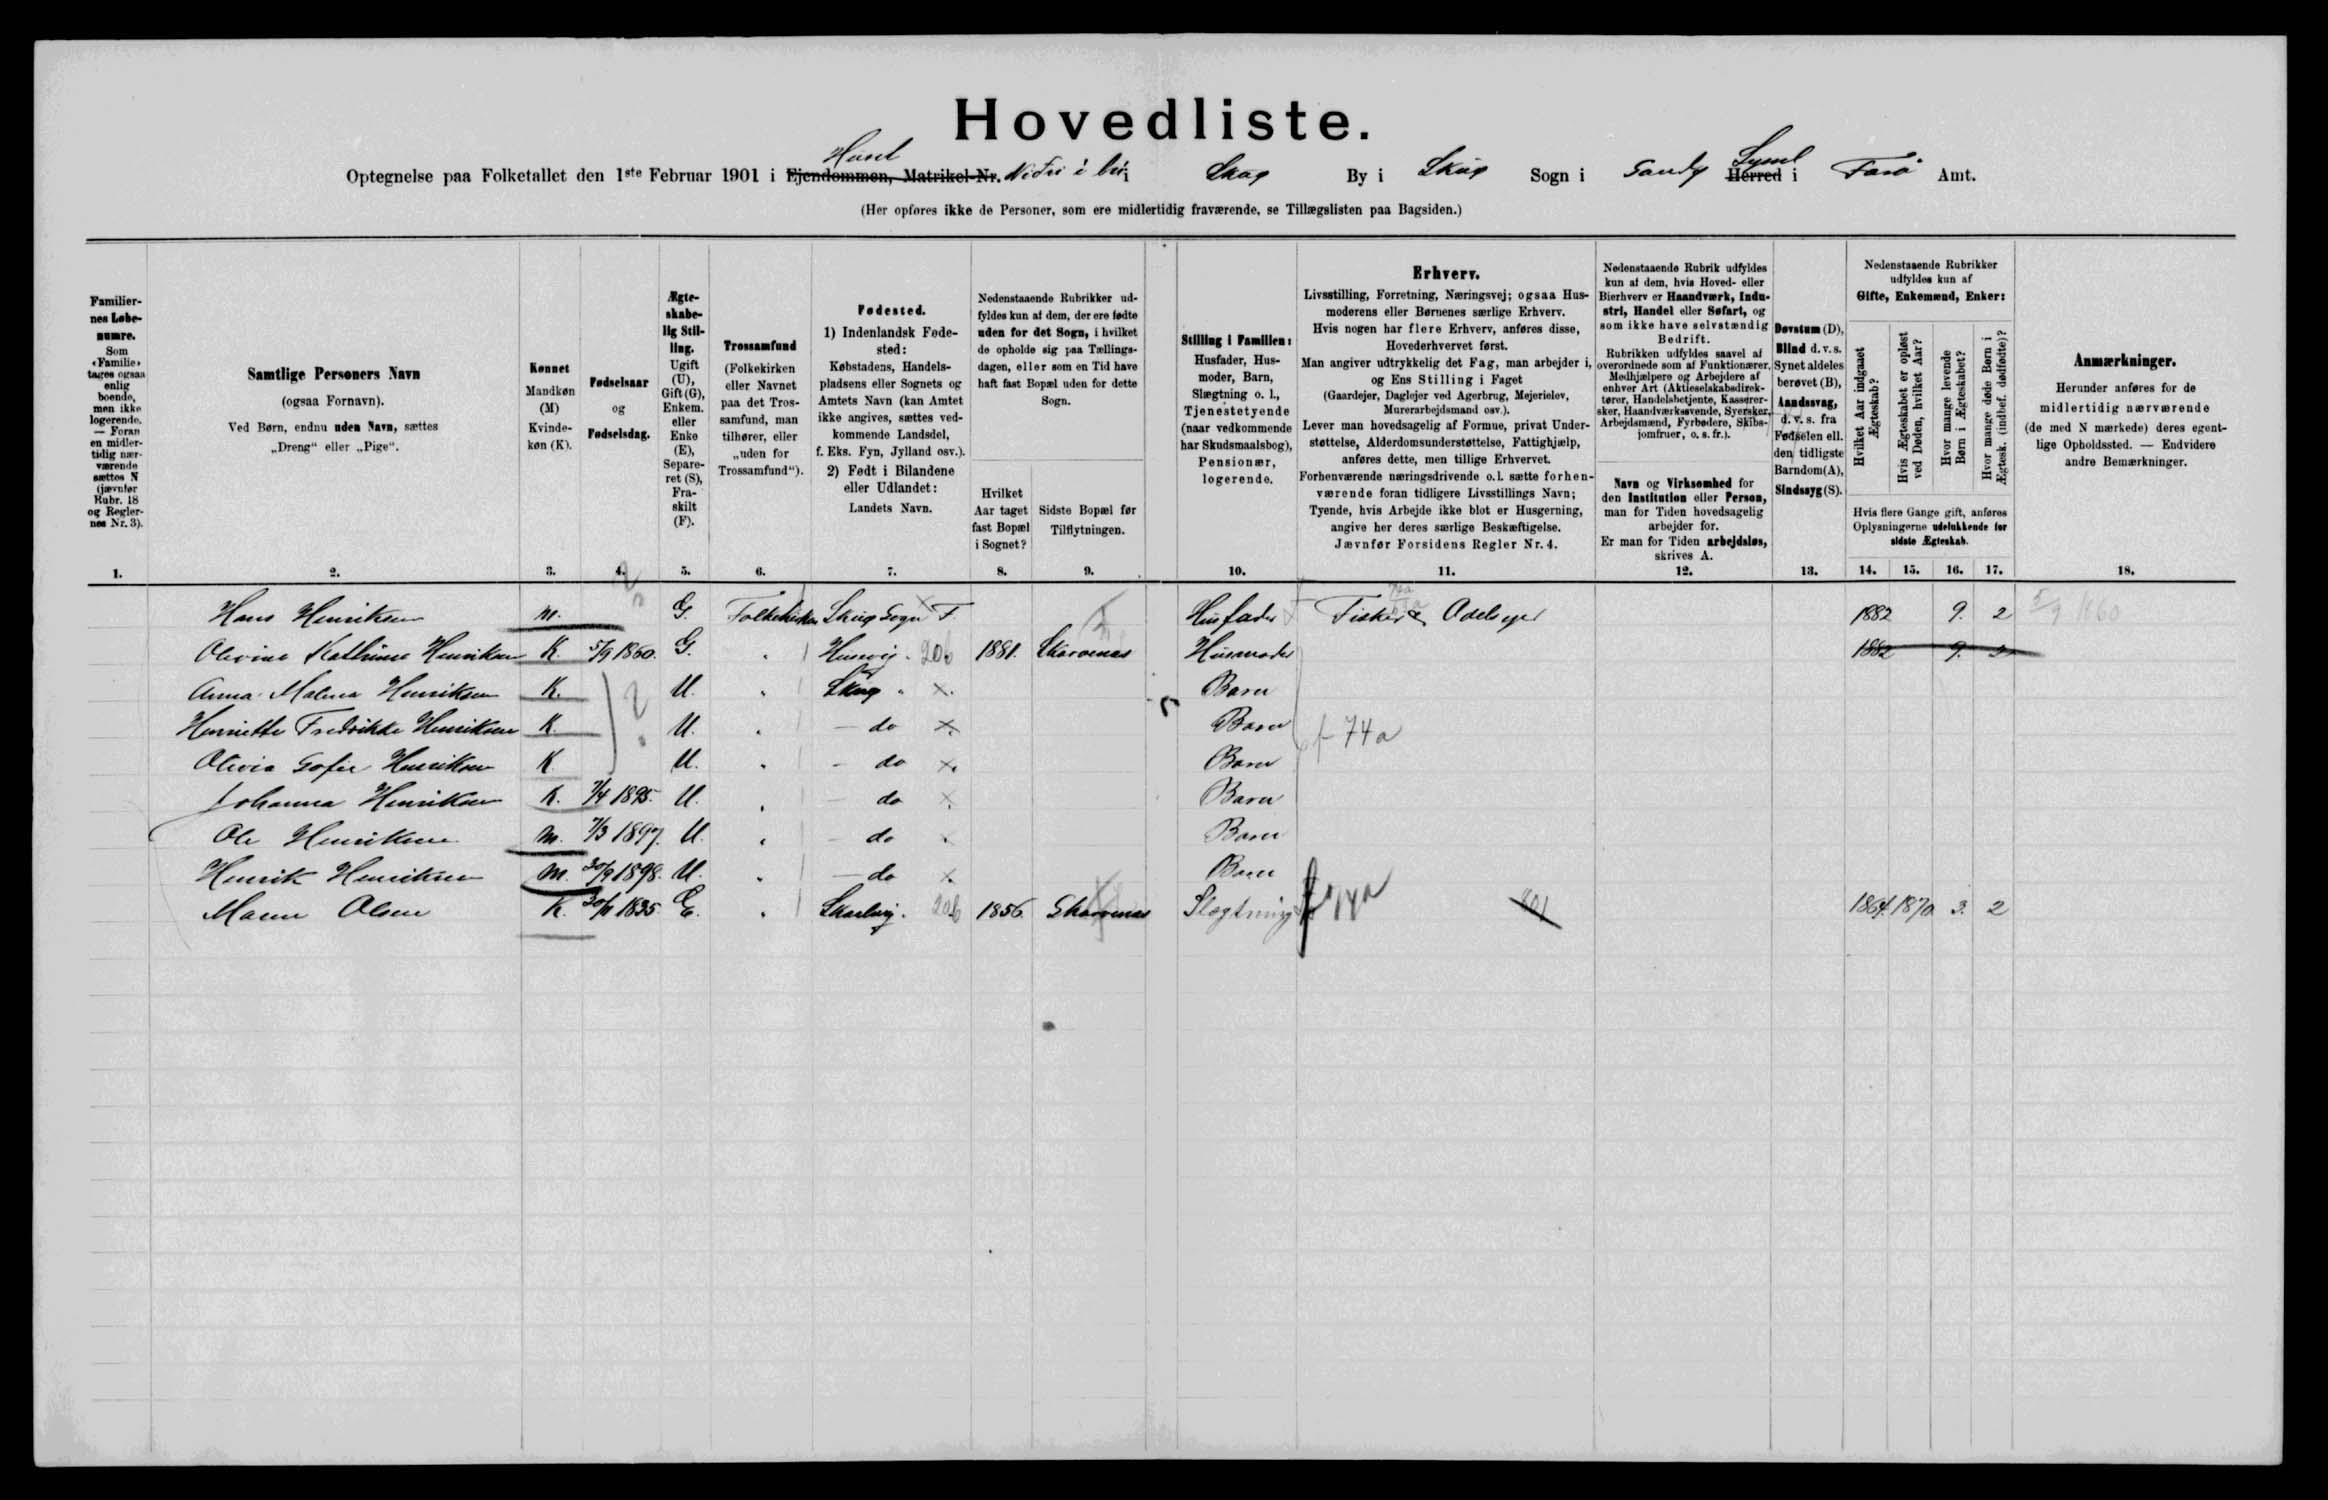 Hovedliste.
Huset
Syssel
Optegnelse paa Folketallet den 1ste Februar 1901 i Ejendommen, Matrikel-Nr. i Skuø By i Skuø Sogn i Sandø Herred i Færø Amt.
(Her opføres ikke de Personer, som ere midlertidig fraværende, se Tillægslisten paa Bagsiden.)
Familier-
nes Løbe-
numre.
Som
«Familie»
tages ogsaa
enlig
boende,
men ikke
logerende.
— Foran
en midler-
tidig nær-
værende
sættes N
(jævnfør
Rubr. 18
og Regler-
nes Nr. 3).
Samtlige Personers Navn
(ogsaa Fornavn).
Ved Børn, endnu uden Navn, sættes
„Dreng“ eller „Pige“.
Kønnet
Mandkøn
(M)
Kvinde-
køn (K).
Fødselsaar
og
Fødselsdag.
Ægte-
skabe-
lig Stil-
ling.
Ugift
(U),
Gift (G),
Enkem.
eller
Enke
(E),
Separe-
ret (S),
Fra-
skilt
(F).
Trossamfund
(Folkekirken
eller Navnet
paa det Tros-
samfund, man
tilhører, eller
„uden for
Trossamfund“).
Fødested.
1) Indenlandsk Føde-
sted:
Købstadens, Handels-
pladsens eller Sognets og
Amtets Navn (kan Amtet
ikke angives, sættes ved-
kommende Landsdel,
f. Eks. Fyn, Jylland osv.).
2) Født i Bilandene
eller Udlandet:
Landets Navn.
Nedenstaaende Rubrikker ud-
fyldes kun af dem, der ere fødte
uden for det Sogn, i hvilket
de opholde sig paa Tællings-
dagen, eller som en Tid have
haft fast Bopæl uden for dette
Sogn.
Hvilket
Aar taget
fast Bopæl
i Sognet?
Sidste Bopæl før
Tilflytningen.
Stilling i Familien:
Husfader, Hus-
moder, Barn,
Slægtning o. l.,
Tjenestetyende
(naar vedkommende
har Skudsmaalsbog),
Pensionær,
logerende.
Erhverv.
Livsstilling, Forretning, Næringsvej; ogsaa Hus-
moderens eller Børnenes særlige Erhverv.
Hvis nogen har flere Erhverv, anføres disse,
Hovederhvervet først.
Man angiver udtrykkelig det Fag, man arbejder i,
og Ens Stilling i Faget
(Gaardejer, Daglejer ved Agerbrug, Mejerielev,
Murerarbejdsmand osv.).
Lever man hovedsagelig af Formue, privat Under-
støttelse, Alderdomsunderstøttelse, Fattighjælp,
anføres dette, men tillige Erhvervet.
Forhenværende næringsdrivende o.l. sætte forhen-
værende foran tidligere Livsstillings Navn;
Tyende, hvis Arbejde ikke blot er Husgerning,
angive her deres særlige Beskæftigelse.
Jævnfør Forsidens Regler Nr. 4.
Nedenstaaende Rubrik udfyldes
kun af dem, hvis Hoved- eller
Bierhverv er Haandværk, Indu-
stri, Handel eller Søfart, og
som ikke have selvstændig
Bedrift.
Rubrikken udfyldes saavel af
overordnede som af Funktionærer,
Medhjælpere og Arbejdere af
enhver Art (Aktieselskabsdirek-
tører, Handelsbetjente, Kasserer-
sker, Haandværkssvende, Syersker,
Arbejdsmænd, Fyrbødere, Skibs-
jomfruer, o. s. fr.).
Navn og Virksomhed for
den Institution eller Person,
man for Tiden hovedsagelig
arbejder for.
Er man for Tiden arbejdsløs,
skrives A.
Døvstum (D),
Blind d. v. s.
Synet aldeles
berøvet (B),
Aandssvag,
d. v. s. fra
Fødselen ell.
den tidligste
Barndom (A),
Sindssyg (S).
Nedenstaaende Rubrikker
udfyldes kun af
Gifte, Enkemænd, Enker:
Hvilket Aar indgaaet
Ægteskab?
Hvis Ægteskabet er opløst
ved Døden, hvilket Aar?
Hvor mange levende
Børn i Ægteskabet?
Hvor mange døde Børn i
Ægtesk. (indbef. dødfødte)?
Hvis flere Gange gift, anføres
Oplysningerne udelukkende for
sidste Ægteskab.
Anmærkninger.
Herunder anføres for de
midlertidig nærværende
(de med N mærkede) deres egent-
lige Opholdssted. — Endvidere
andre Bemærkninger.
1. 2. 3. 4. 5. 6. 7. 8. 9. 10. 11. 12. 13. 14. 15. 16. 17. 18.
Hans Henriksen M. ? G. Folkekirken Skuø Sogn F. Husfader Fisker & Odelsejer 1882 9. 2 5/9 1860
Olevine Kathrine Henriksen K. 5/9 1860. G. " Husevig 206 1881. Skarvenæs Husmoder 1882 9. 2
Anna Malena Henriksen K. ? U. " Skuø " x. Barn
Henriette Fredrikke Henriksen K. U. " - do x. Barn f 74a
Olivia Sofie Henriksen K. U. " - do x. Barn
Johanna Henriksen K. 7/4 1895. U. " - do x. Barn
Ole Henriksen M. 7/3 1897. U. " - do x. Barn
Henrik Henriksen M. 30/9 1898. U. " - do x. Barn
Maren Olsen K. 30/11 1835. E. " 206 1856. Skarvenæs Slægtning f 74a 801 1864. 1870. 3. 2